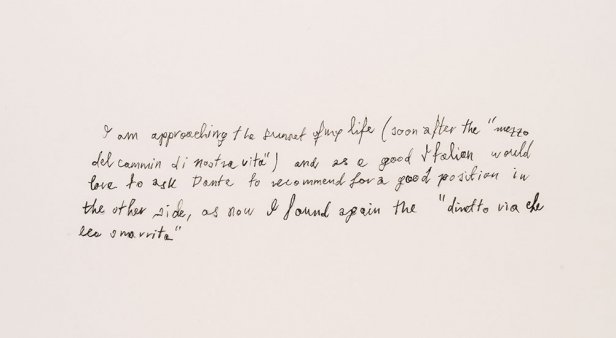 I am approaching the sunset of my life (soon after the "mezzo
del cammin di nostra vita") and as a good Italian would
love to ask Dante to recommend for a good position in
the other side, as now I found again the "diretto via che
era smarrita"